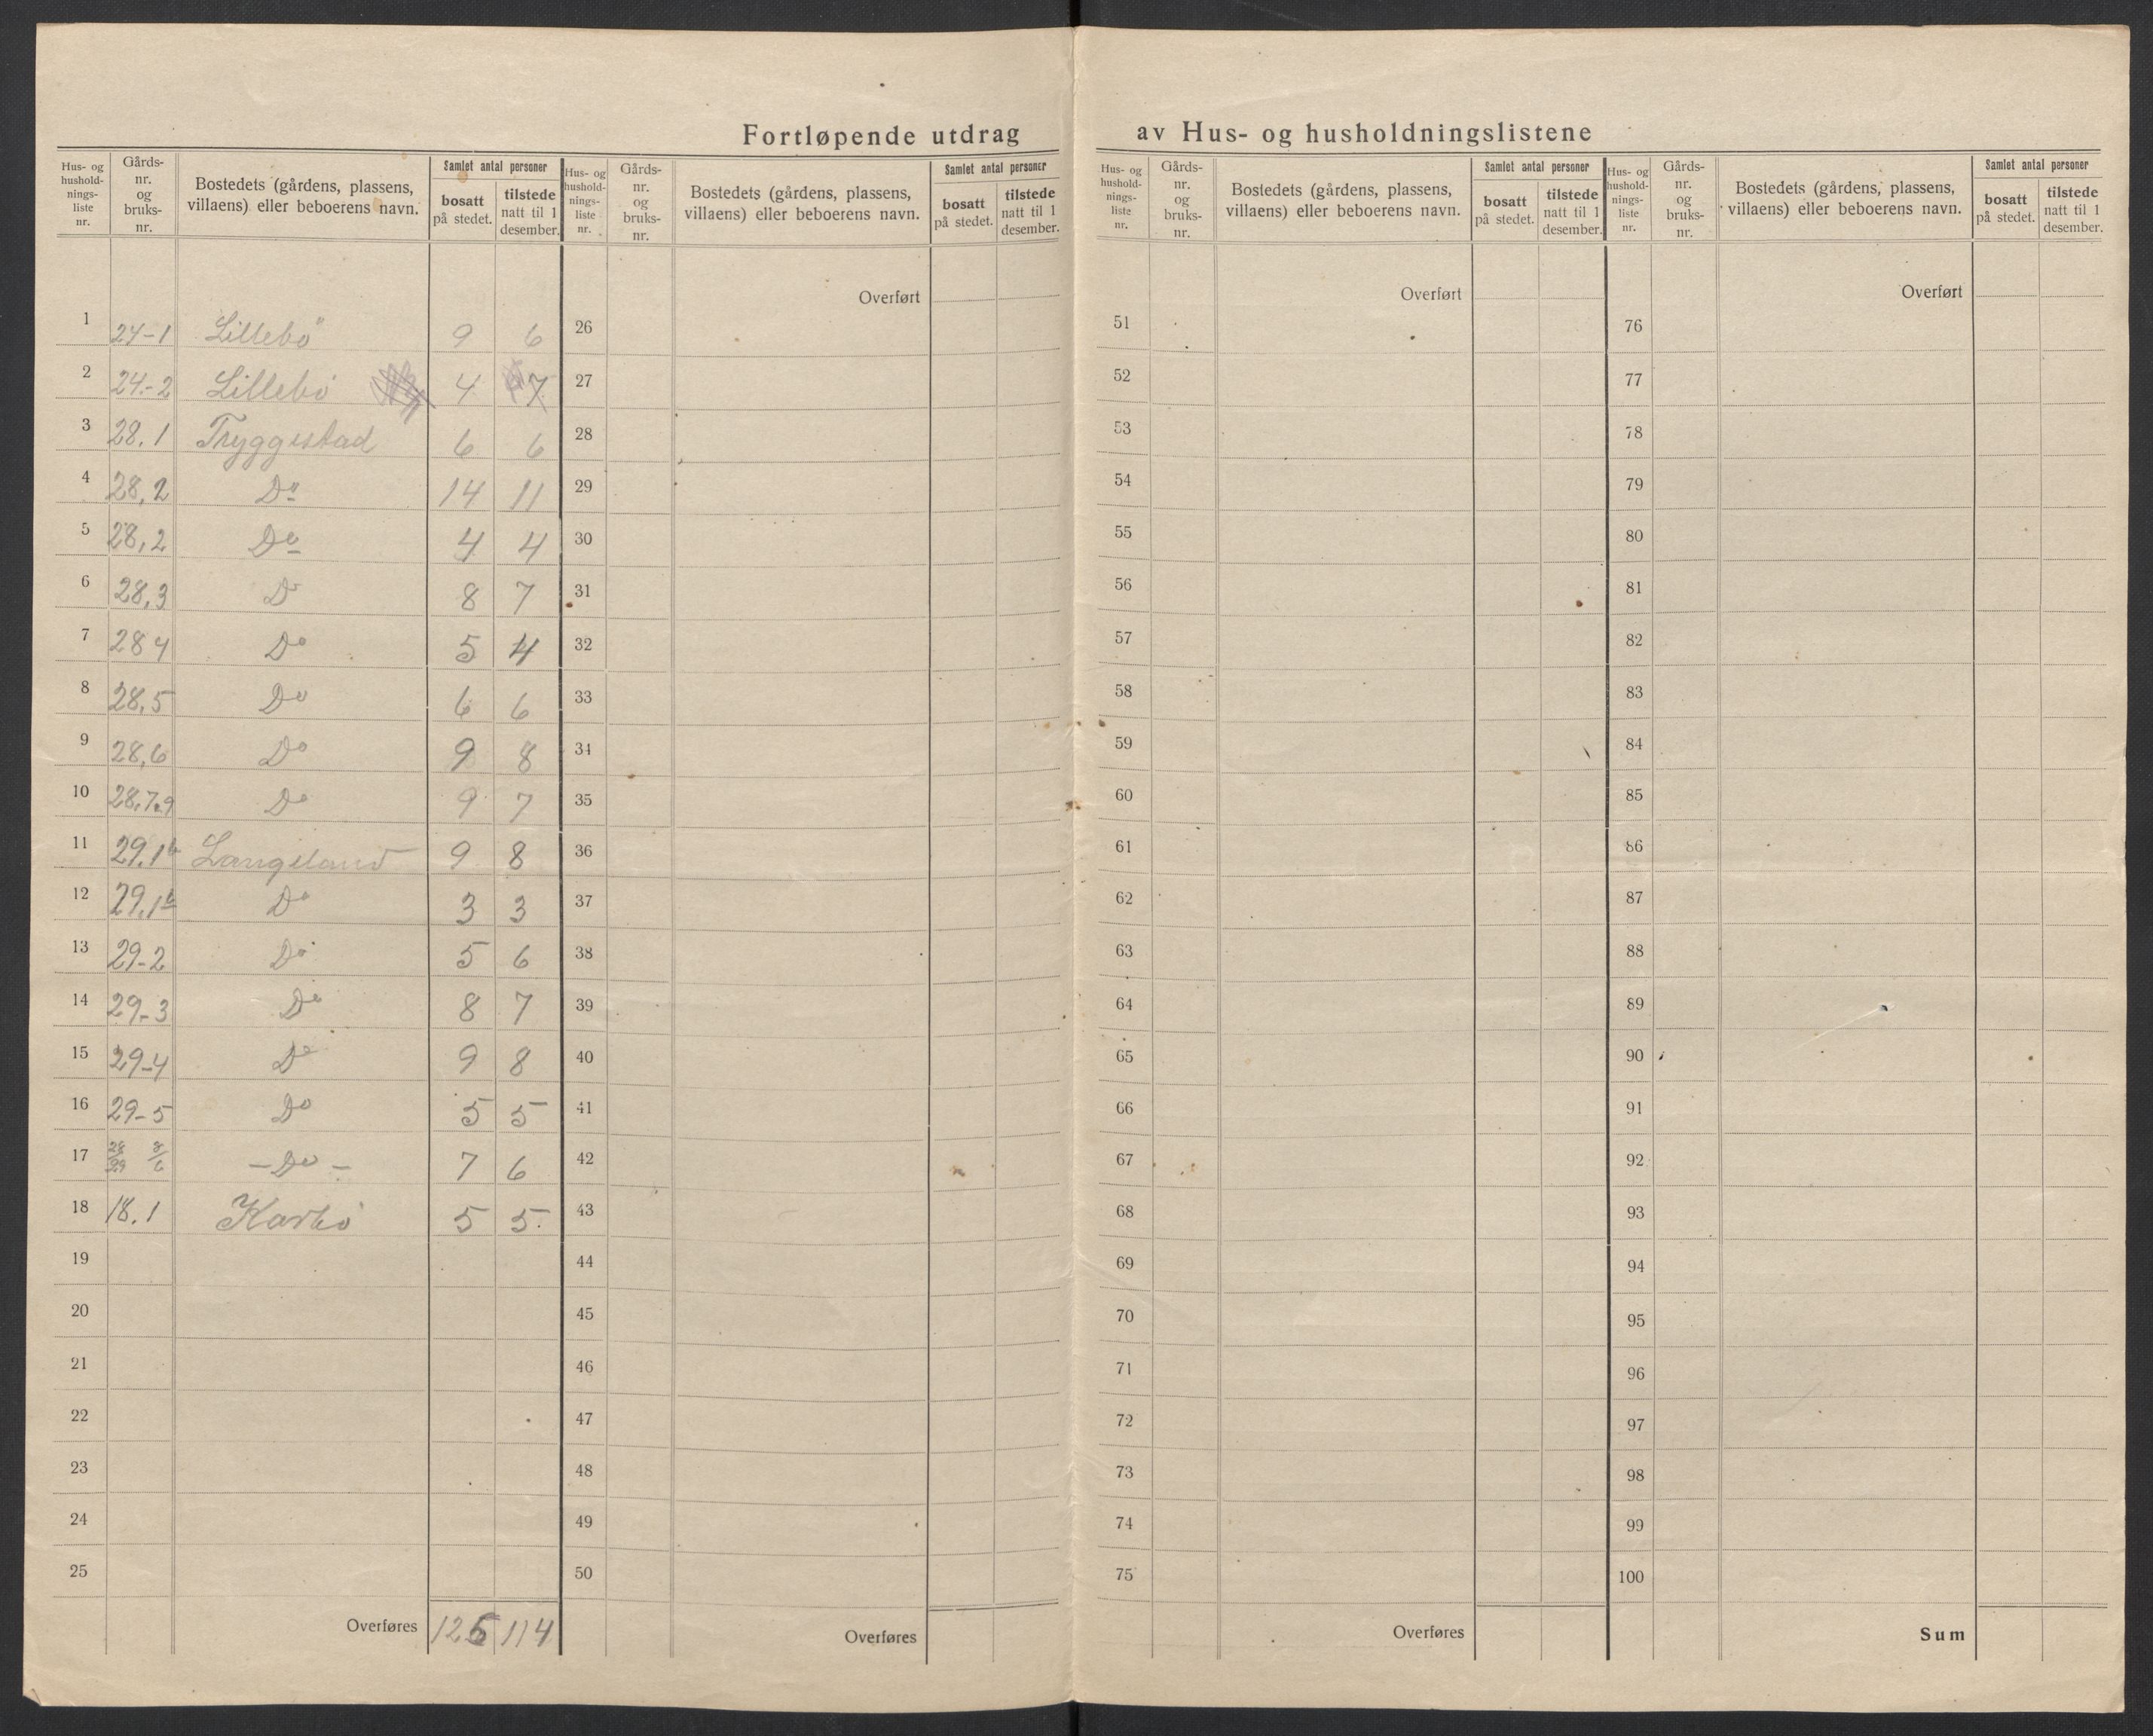 Fortløpende utdrag av Hus- og husholdningslistene
Hus- og hushold-nings-liste nr. | Gårds-nr. og bruks-nr. | Bostedets (gårdens, plassens, villaens) eller beboerens navn. | Samlet antal personer | bosatt på stedet. | tilstede natt til 1 desember.
Hus- og hushold-nings-liste nr. | Gårds-nr. og bruks-nr. | Bostedets (gårdens, plassens, villaens) eller beboerens navn. | Samlet antal personer | bosatt på stedet. | tilstede natt til 1 desember.
Hus- og hushold-nings-liste nr. | Gårds-nr. og bruks-nr. | Bostedets (gårdens, plassens, villaens) eller beboerens navn. | Samlet antal personer | bosatt på stedet. | tilstede natt til 1 desember.
Hus- og hushold-nings-liste nr. | Gårds-nr. og bruks-nr. | Bostedets (gårdens, plassens, villaens) eller beboerens navn. | Samlet antal personer | bosatt på stedet. | tilstede natt til 1 desember.
Overført Overført Overført
1 24-1 Lillebö 9 6 26 51 76
2 24-2 Lillebö 4 7 27 52 77
3 28.1 Tryggestad 6 6 28 53 78
4 28,2 Do 14 11 29 54 79
5 28,2 Do 4 4 30 55 80
6 28,3 Do 8 7 31 56 81
7 28 4 Do 5 4 32 57 82
8 28,5 Do 6 6 33 58 83
9 28,6 Do 9 8 34 59 84
10 28,7.9 Do 9 7 35 60 85
11 29.1 Langeland 9 8 36 61 86
12 29,1b Do 3 3 37 62 87
13 29-2 Do 5 6 38 63 88
14 29-3 Do 8 7 39 64 89
15 29-4 Do 9 8 40 65 90
16 29-5 Do 5 5 41 66 91
17 28/29 8/6 - Do - 7 6 42 67 92
18 18.1 Karbö 5 5. 43 68 93
19 44 69 94
20 45 70 95
21 46 71 96
22 47 72 97
23 48 73 98
24 49 74 99
25 50 75 100
Overføres 125 114 Overføres Overføres Sum